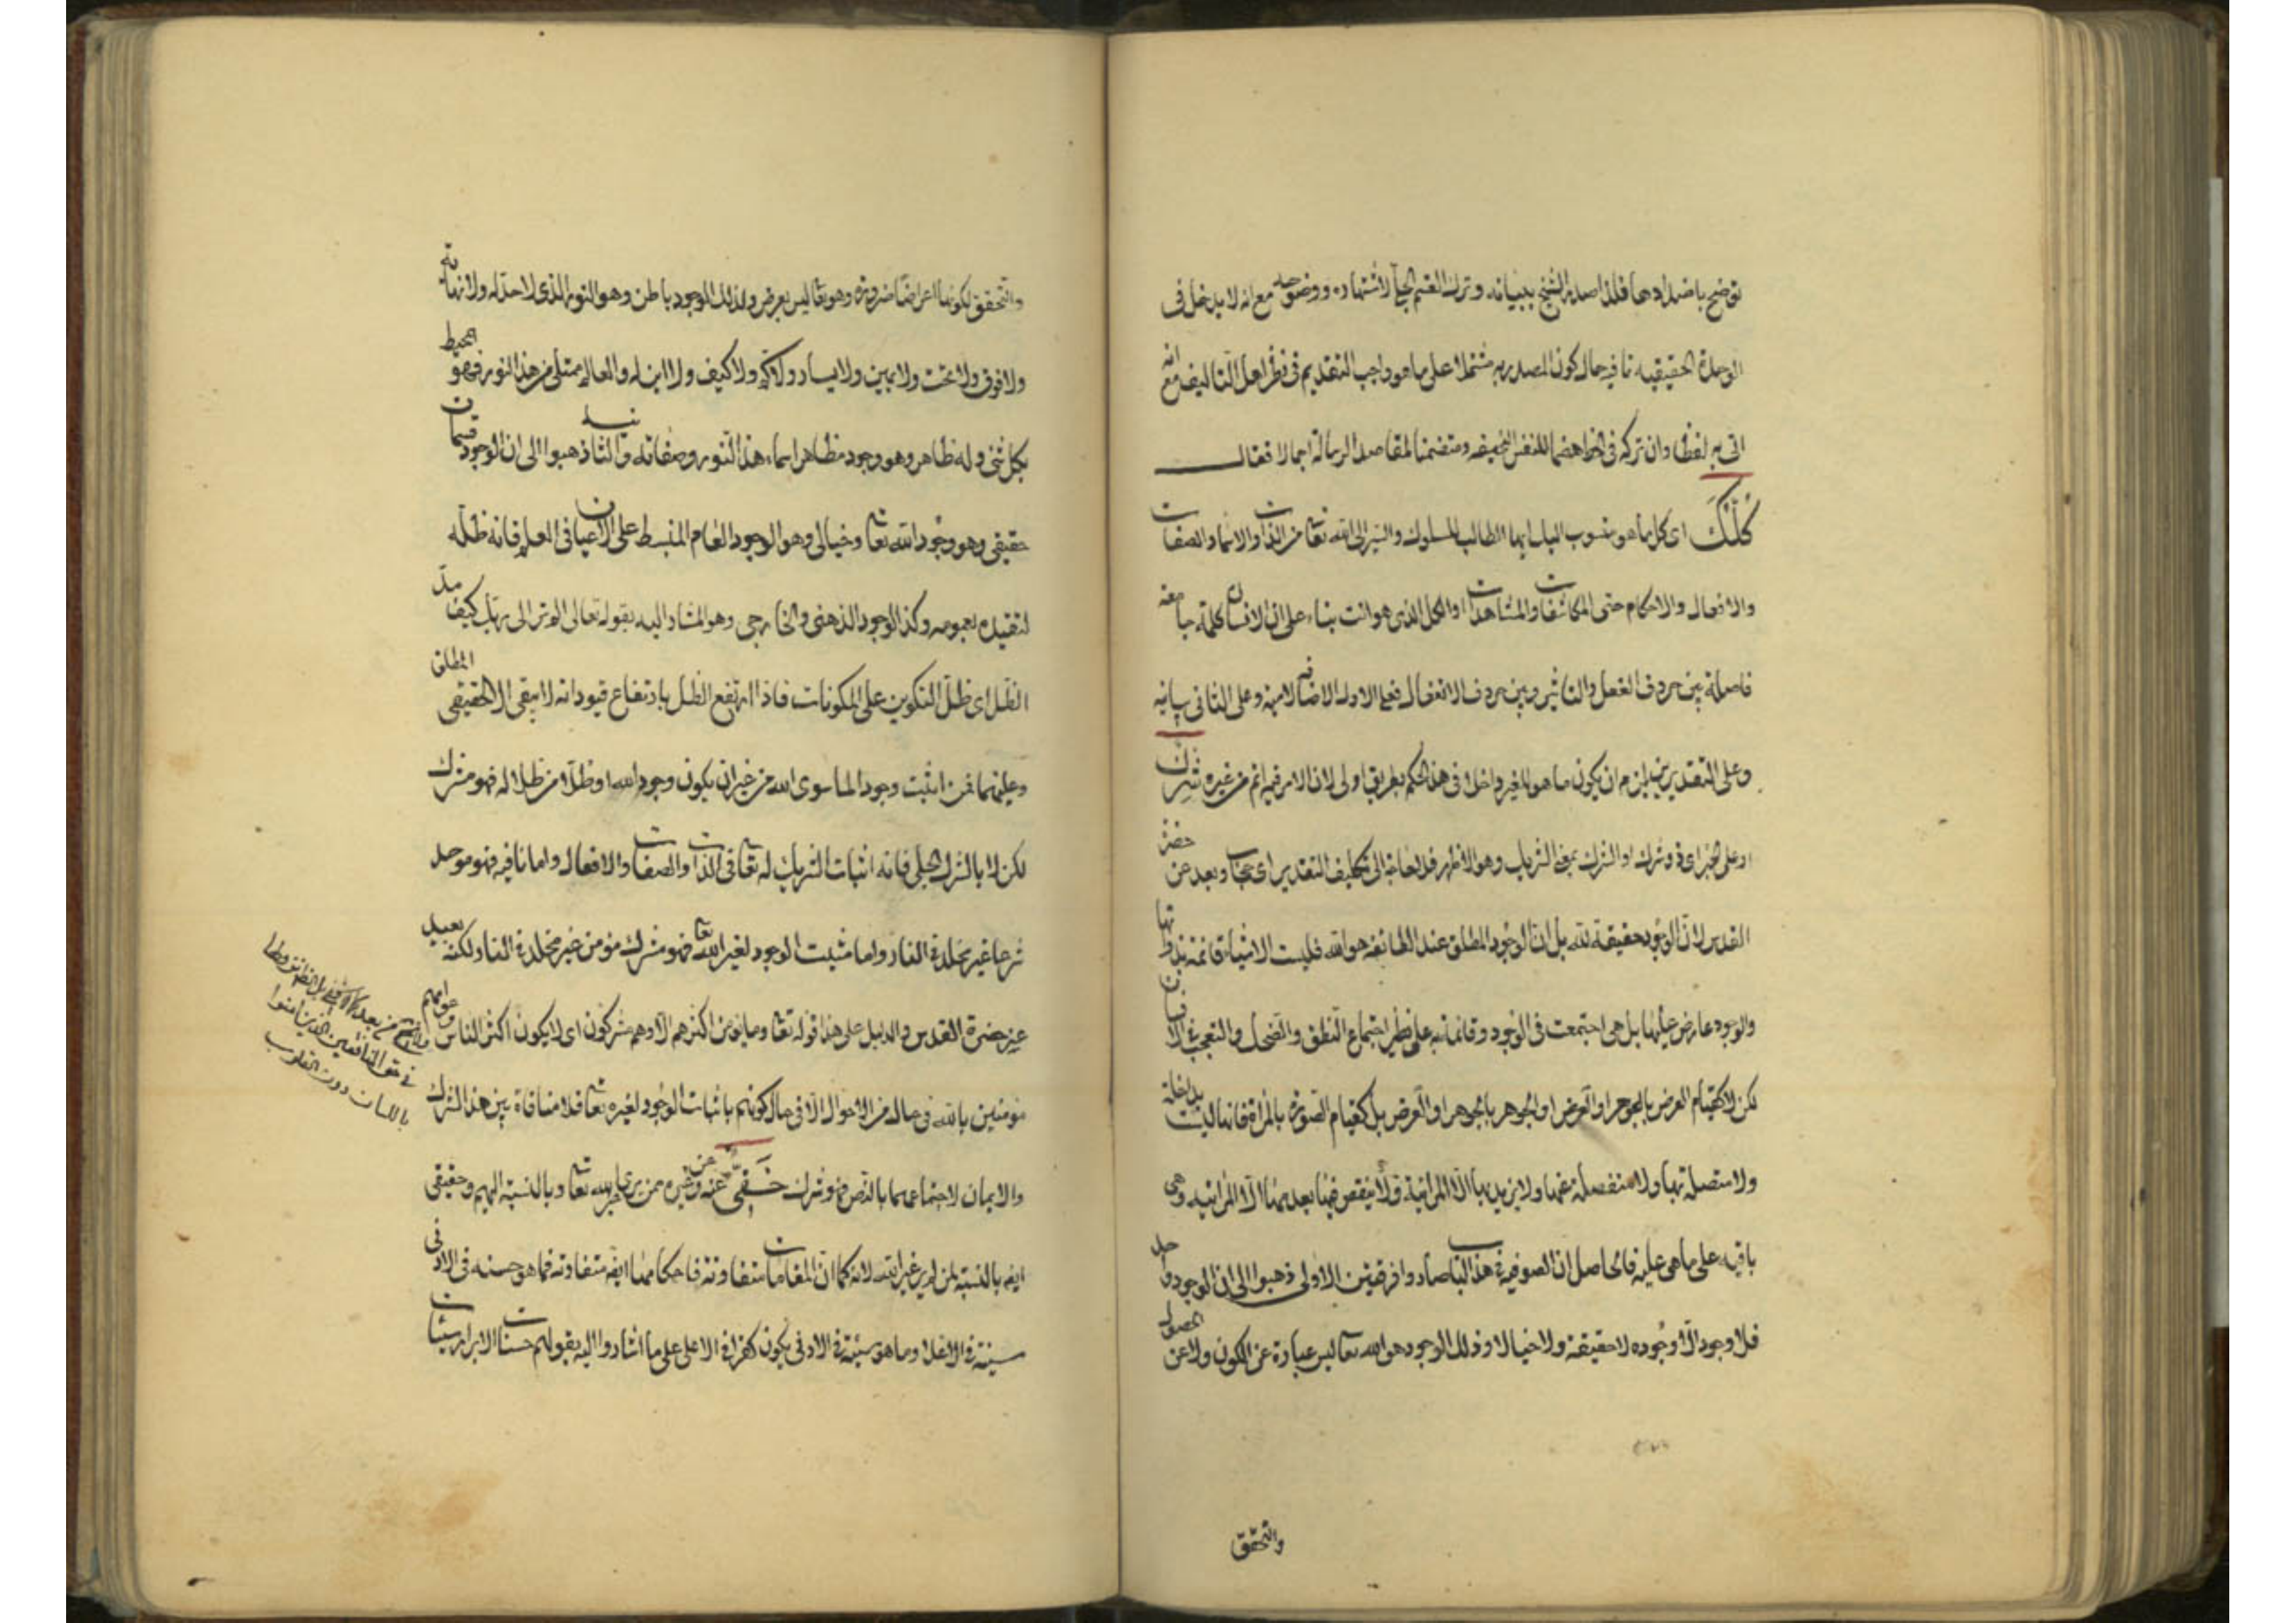 توضح باضدادها فلذا صدر الشيخ ببيانه وترك القسم الجلي لاشتهاره ووضوحه مع انه لا يدخل في
الوحدة الحقيقية نافيه حال كون المصدر به مشتملا على ما هو واجب التقديم في نظر اهل التأليف مع انه
اتى به لفظا وان تركه في الخط هضما للنفس الضعيفة ومتضمنا لمقاصد الرسالة اجمالا فقال
كلك اى كل ما هو منسوب اليك ايها الطالب للسلوك والسير الى الله تعالى من الذات والاسماء والصفات
والافعال والاحكام حتى المكاشفات والمشاهدات او الكل الذى هو انت بناء على ان الانسان كلمة جامعة
فاصلة بين حروف الفعل والتاثير وبين حروف الانفعال فعلى الاول الاضافة لامية وعلى الثانى بيانية
وعلى التقديرين يلزم ان يكون ما هو للغير داخلا فى هذا الحكم بطريق اولى لان الامر فيه اتم من غيره شرك
اى فى شرك او الشرك بمعنى الشريك وهو الاظهر فلا حاجة الى تكليف التقدير اى حجاب وبعد عن حضرة
القدس لان الوجود حقيقة لله بل ان الوجود المطلق عند الطائفة هو الله فليست الاشياء قائمة بذواتها
والوجود عارض عليها بل هى اجتمعت فى الوجود وقائمة به على نظير اجتماع النطق والضحك والتعجب فى الانسان
لكن لا كقيام العرض بالجوهر او العرض او الجوهر بالجوهر او العرض بل كقيام الصورة بالمرآة فانها ليست بداخلة
ولا متصلة بها ولا منفصلة عنها ولا يزيد بها الا المراتبة ولا ينقص فيها بعدمها الا المراتبه وهى
باقية على ما هى عليه فالحاصل ان الصوفية فى هذا الباب صاروا فرقتين الاولى ذهبوا الى ان الوجود واحد
فلا وجود الا وجوده لا حقيقة ولا خيالا وذلك الوجود هو الله تعالى ليس عبارة عن الكون ولا عن الحصول
والتحقق
والتحقق لكونها اعراضا ضرورة وهو تعالى ليس بعرض ولذلك الوجود باطن وهو النور الذى لا حد له ولا نهاية
ولا فوق ولا تحت ولا يمين ولا يسار ولا كم ولا كيف ولا اين له والعالم ممتلئ من هذا النور فهو المحيط
بكل شئ وله ظاهر وهو وجود مظاهر اسماء هذا النور وصفاته والثانية ذهبوا الى ان الوجود قسمان
حقيقى وهو وجود الله تعالى وخيالى وهو الوجود العام المنبسط على الاعيان فى العلم فانه ظل له
لتقيده بعمومه وكذا الوجود الذهنى والخارجى وهو المشار اليه بقوله تعالى الم تر الى ربك كيف مد
الظل اى ظل التكوين على المكونات فاذا ارتفع الظل بارتفاع قيوداته لا يبقى الا الحقيقى المطلق
وعليهما فمن اثبت وجودا لما سوى الله من غير ان يكون وجود الله او ظلا من ظلاله فهو مشرك
لكن لا بالشرك الجلى فانه اثبات الشريك له تعالى فى الذات والصفات والافعال واما نافيه فهو موحد
شرعا غير مخلد فى النار واما مثبت الوجود لغير الله تعالى فهو مشرك مؤمن غير مخلد فى النار ولكنه بعيد
عن حضرة القدس والدليل على هذا قوله تعالى وما يؤمن اكثرهم الا وهم مشركون اى لا يكون اكثر الناس وهو اعمهم
مؤمنين بالله فى حال من الاحوال الا فى حال كونهم باثبات الوجود لغيره تعالى فلا منافاة بين هذا الشرك
والايمان لاجتماعهما بالنص فهو شرك خفى عنه وعن غيره ممن يرى غير الله تعالى وبالنسبة اليهم وحقيقى
ايضا بالنسبة لمن لم ير غير الله لانه كما ان المقامات متفاوتة فاحكامها ايضا متفاوتة فما هو حسنة فى الادنى
سيئة فى الاعلى وما هو سيئة فى الادنى يكون كفرا فى الاعلى على ما اشاروا اليه بقولهم حسنات الابرار سيئات
فى حق المنافقين الذين امنوا
باللسان دون القلوب